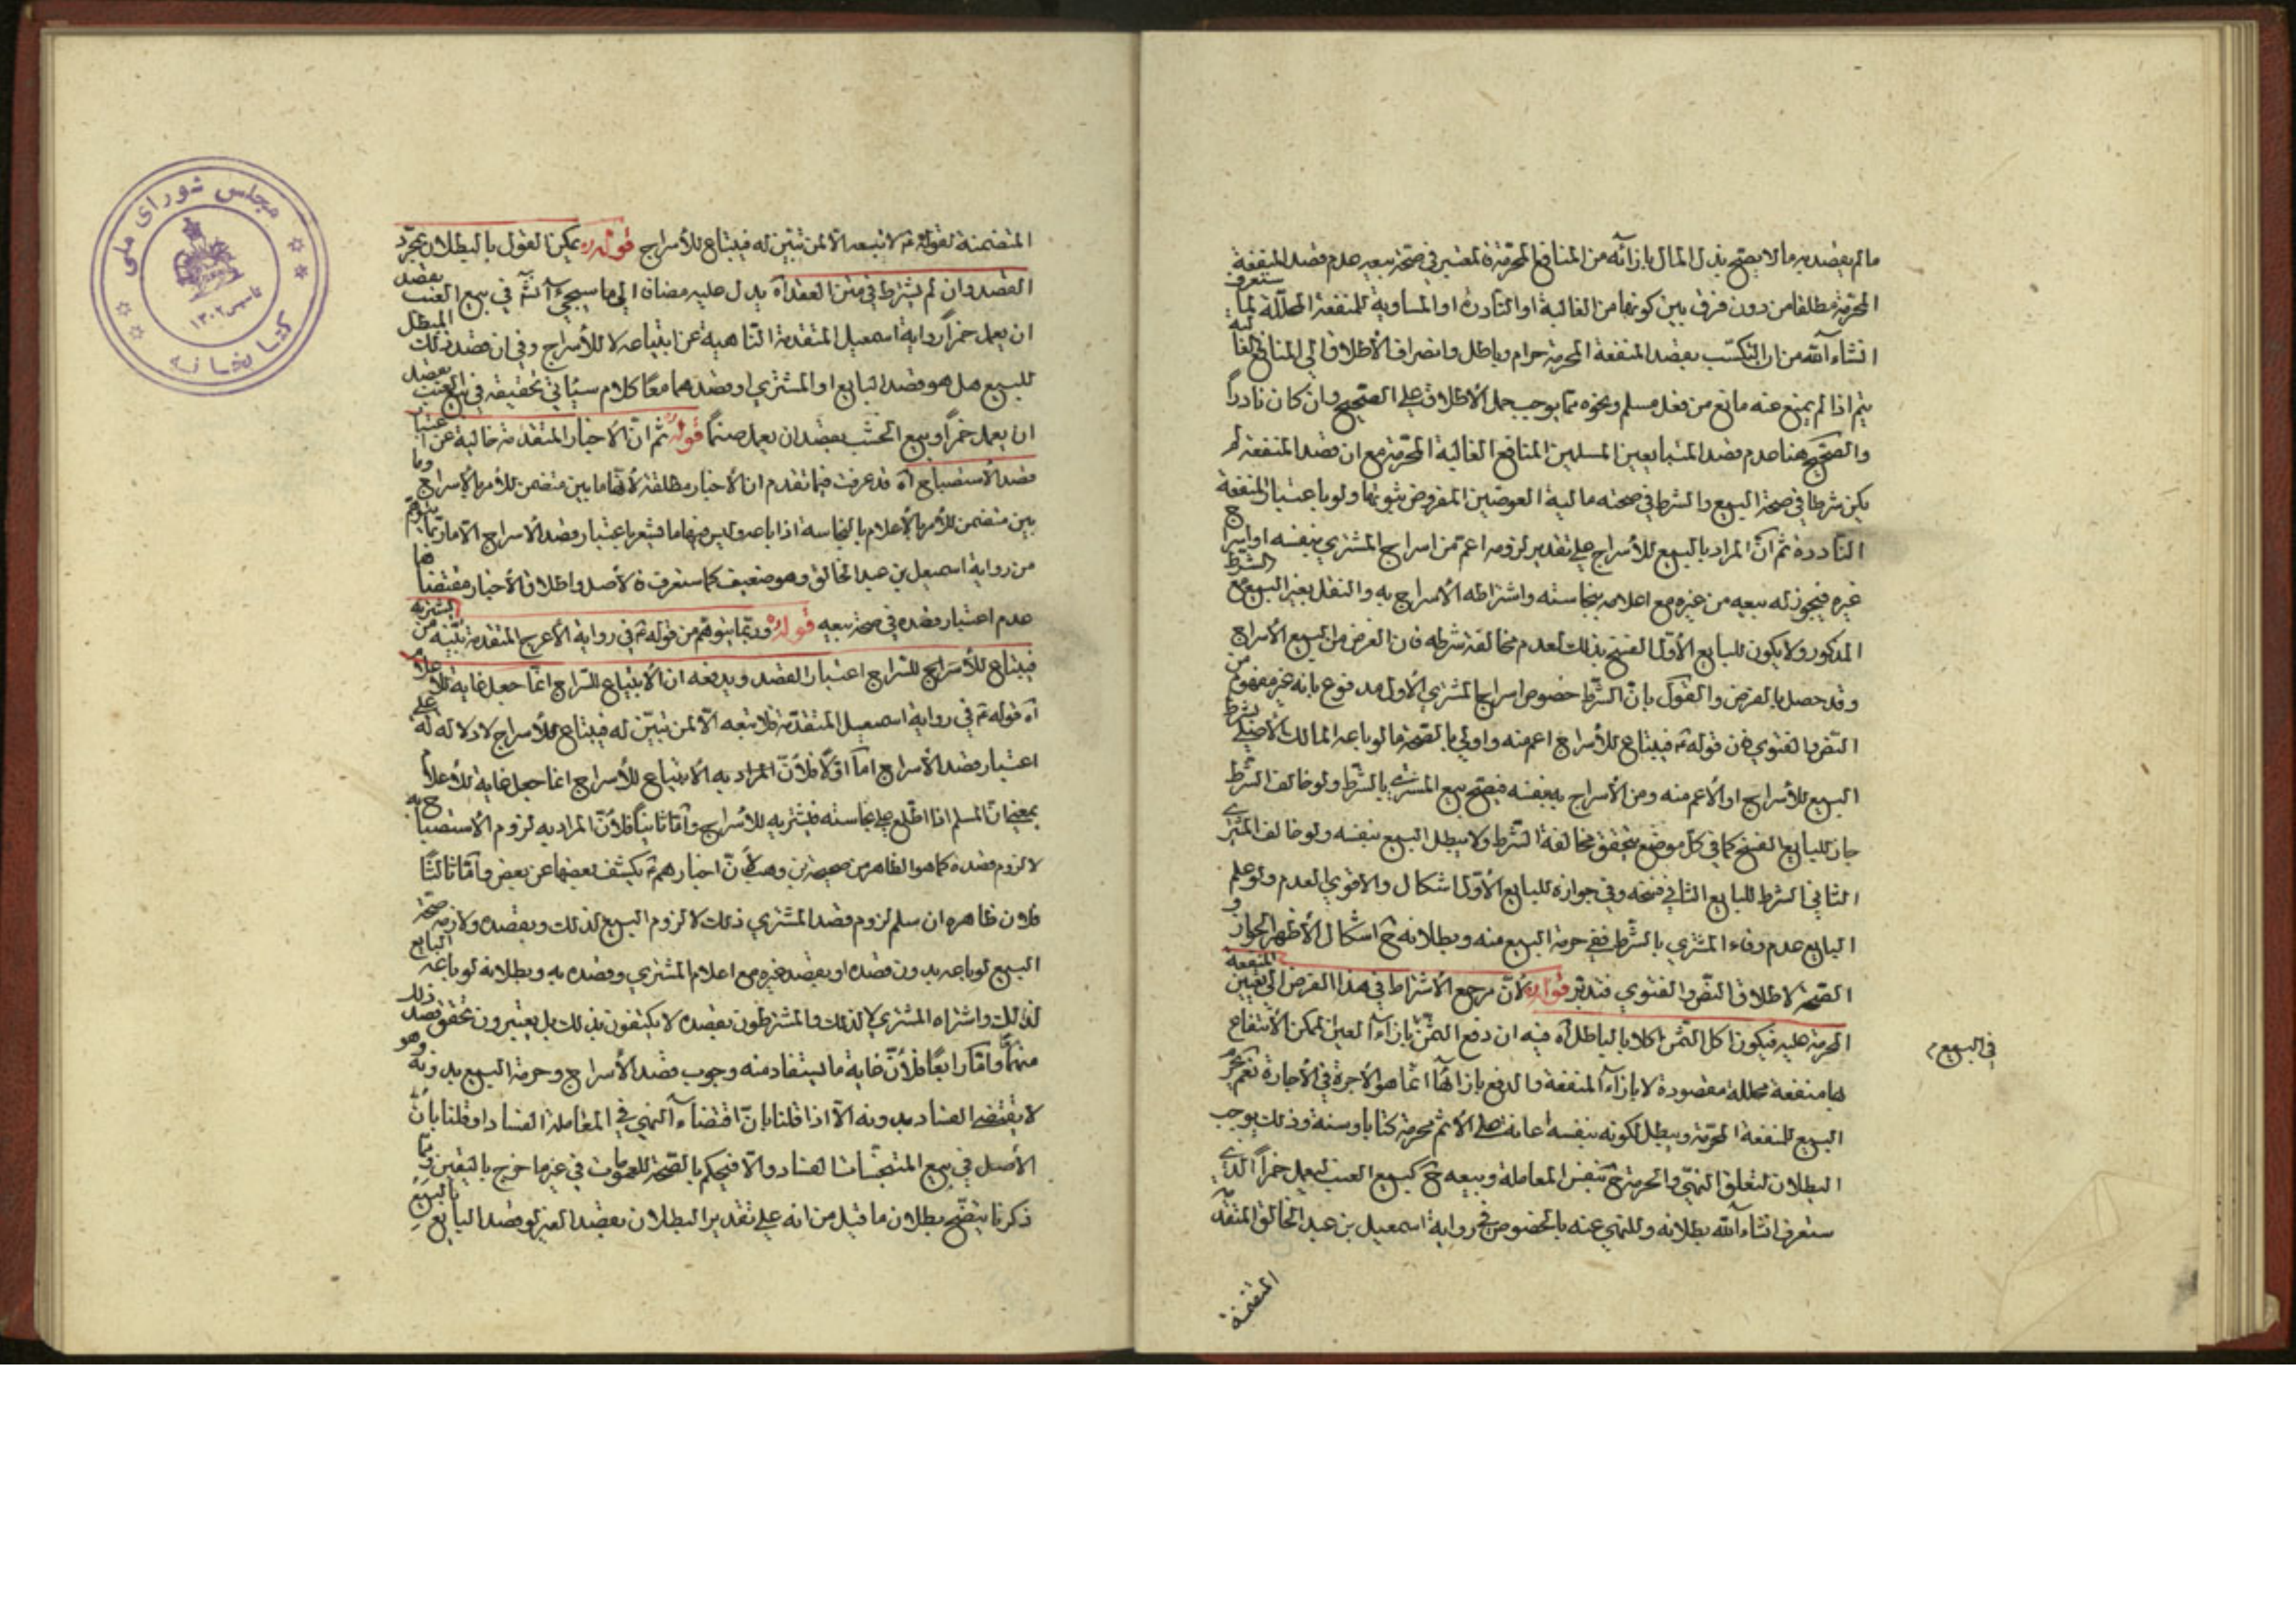 مالم يقصد به ما لا يصح بذل المال بازائه من المنافع المحرمة فالمعتبر في صحة بيعه عدم قصد المنفعة
المحرمة مطلقا من دون فرق بين كونها من الغالبة او النادرة او المساوية للمنفعة المحللة لما ستعرف
انشاء الله من ان التكسب بقصد المنفعة المحرمة حرام وباطل وانصراف الاطلاق الى المنافع الغالبة
يتم اذا لم يمنع عنه مانع من فعل مسلم ونحوه مما يوجب حمل الاطلاق على الصحيح وان كان نادراً
والصحيح هنا عدم قصد المتبايعين المسلمين المنافع الغالبة المحرمة مع ان قصد المنفعة لم
يكن شرطا في صحة البيع والشرط في صحته مالية العوضين المفروض ثبوتها ولو باعتبار المنفعة
النادرة ثم ان المراد بالبيع للأسراج على تقدير لزومه اعم من اسراج المشتري بنفسه او اسراج
غيره فيجوز له بيعه من غيره مع اعلامه بنجاسته واشتراطه الأسراج به والنقل بغير البيع مع الشرط
المذكور ولا يكون للبايع الأول الفسخ بذلك لعدم مخالفة شرطه فان الغرض من البيع الأسراج
وقد حصل بالفرض والقول بان الشرط خصوص اسراج المشتري الأول مدفوع بانه غير مفهوم من
النص والفتوى فان قوله ع فيبتاع للأسراج اعم منه واولى بالصحة ما لو باعه المالك الأصلي بشرط
البيع للأسراج او الأعم منه ومن الأسراج به بنفسه فيصح بيع المشتري بالشرط ولو خالف الشرط
جاز للبايع الفسخ كما في كل موضع يتحقق مخالفة الشرط ولا يبطل البيع بنفسه ولو خالف المشتري
الثاني الشرط للبايع الثاني فسخه وفي جوازه للبايع الأول اشكال والاقوى العدم ولو علم
البايع عدم وفاء المشتري بالشرط ففي حرمة البيع منه وبطلانه ح اشكال الأظهر الجواز و
الصحة لاطلاق النص والفتوى فتدبر قوله ره لأن مرجع الأشتراط في هذا الفرض الى تعيين المنفعة
المحرمة عليه فيكون اكل الثمن اكلا بالباطل آه فيه ان دفع الثمن بازاء العين الممكن الأنتفاع
بها منفعة محللة مقصودة لا بازاء المنفعة والدفع بازائها انما هو الأجرة في الأجارة نعم يحرم
في البيع م
البيع للمنفعة المحرمة ويبطل لكونه بنفسه اعانة على الأثم محرمة كتابا وسنة وذلك يوجب
البطلان لتعلق النهي والحرمة ح بنفس المعاملة وبيعه ح كبيع العنب ليعمل خمراً الذي
ستعرف انشاء الله بطلانه وللنهي عنه بالخصوص في رواية اسمعيل بن عبد الخالق المتقدمة
المتضمنة
المتضمنة لقوله ع لا تبعه الا لمن تبين له فيبتاع للأسراج قوله ره يمكن القول بالبطلان بمجرد
القصد وان لم يشترط في متن العقد آه يدل عليه مضافا الى ما سيجيء آنشه في بيع العنب بقصد
ان يعمل خمراً رواية اسمعيل المتقدمة الناهية عن ابتياعه لا للأسراج وفي ان قصد ذلك المبطل
للبيع هل هو قصد البايع او المشتري او قصدهما معا كلام سيأتي تحقيقه في بيع العنب بقصد
ان يعمل خمراً وبيع الخشب بقصد ان يعمل صنما قوله ره ثم ان الأخبار المتقدمة خالية عن اعتبار
قصد الأستصباح آه قد عرفت فيما تقدم ان الأخبار مطلقة لأنها ما بين متضمن للأمر بالأسراج وما
بين متضمن للأمر بالأعلام بالنجاسة اذا باعه وليس فيها ما يشعر باعتبار قصد الأسراج الا ما ربما يتوهم
من رواية اسمعيل بن عبد الخالق وهو ضعيف كما ستعرف فالأصل واطلاق الأخبار مقتضاها
عدم اعتبار قصده في صحة بيعه قوله ره وربما يتوهم من قوله ع في رواية الأعرج المتقدمة تبينه لمن يشتريه
فيبتاع للأسراج للسراج اعتبار القصد ويدفعه ان الأبتياع للسراج انما جعل غاية للأعلام
آه قوله ع في رواية اسمعيل المتقدمة فلا تبعه الا لمن تبين له فيبتاع للأسراج لا دلالة له على
اعتبار قصد الأسراج اما اولا فلأن المراد به الابتياع للأسراج انما جعل غاية للأعلام
بمعنى ان المسلم اذا اطلع على نجاسته فيشتريه للأسراج واما ثانيا فلأن المراد به لزوم الأستصباح به
لا لزوم قصده كما هو الظاهر من صحيحة بن وهب لأن اخبارهم ع يكشف بعضها عن بعض واما ثالثا
فلان ظاهره ان سلم لزوم قصد المشتري ذلك لا لزوم البيع لذلك وبقصده ولازمه صحة
البيع لو باعه بدون قصده او بقصد غيره مع اعلام المشتري وقصده به وبطلانه لو باعه البايع
لذلك واشتراه المشتري لا لذلك والمشترطون بقصده لا يكتفون بذلك بل يعتبرون تحقق قصد ذلك
منهما واما رابعا فلأن غاية ما يستفاد منه وجوب قصد الأسراج وحرمة البيع بدونه وهو
لا يقتضي الفساد بدونه الا اذا قلنا بان اقتضاء النهي في المعاملة الفساد او قلنا بأن
الأصل في بيع المتنجسات الفساد والا فيحكم بالصحة للعمومات في غير ما خرج باليقين ومما
ذكرنا يتضح بطلان ما قيل من انه على تقدير البطلان بقصد الغير لو قصد البايع بالبيع
مجلس شورای ملی
کتابخانه
تاسیس ۱۳۰۲